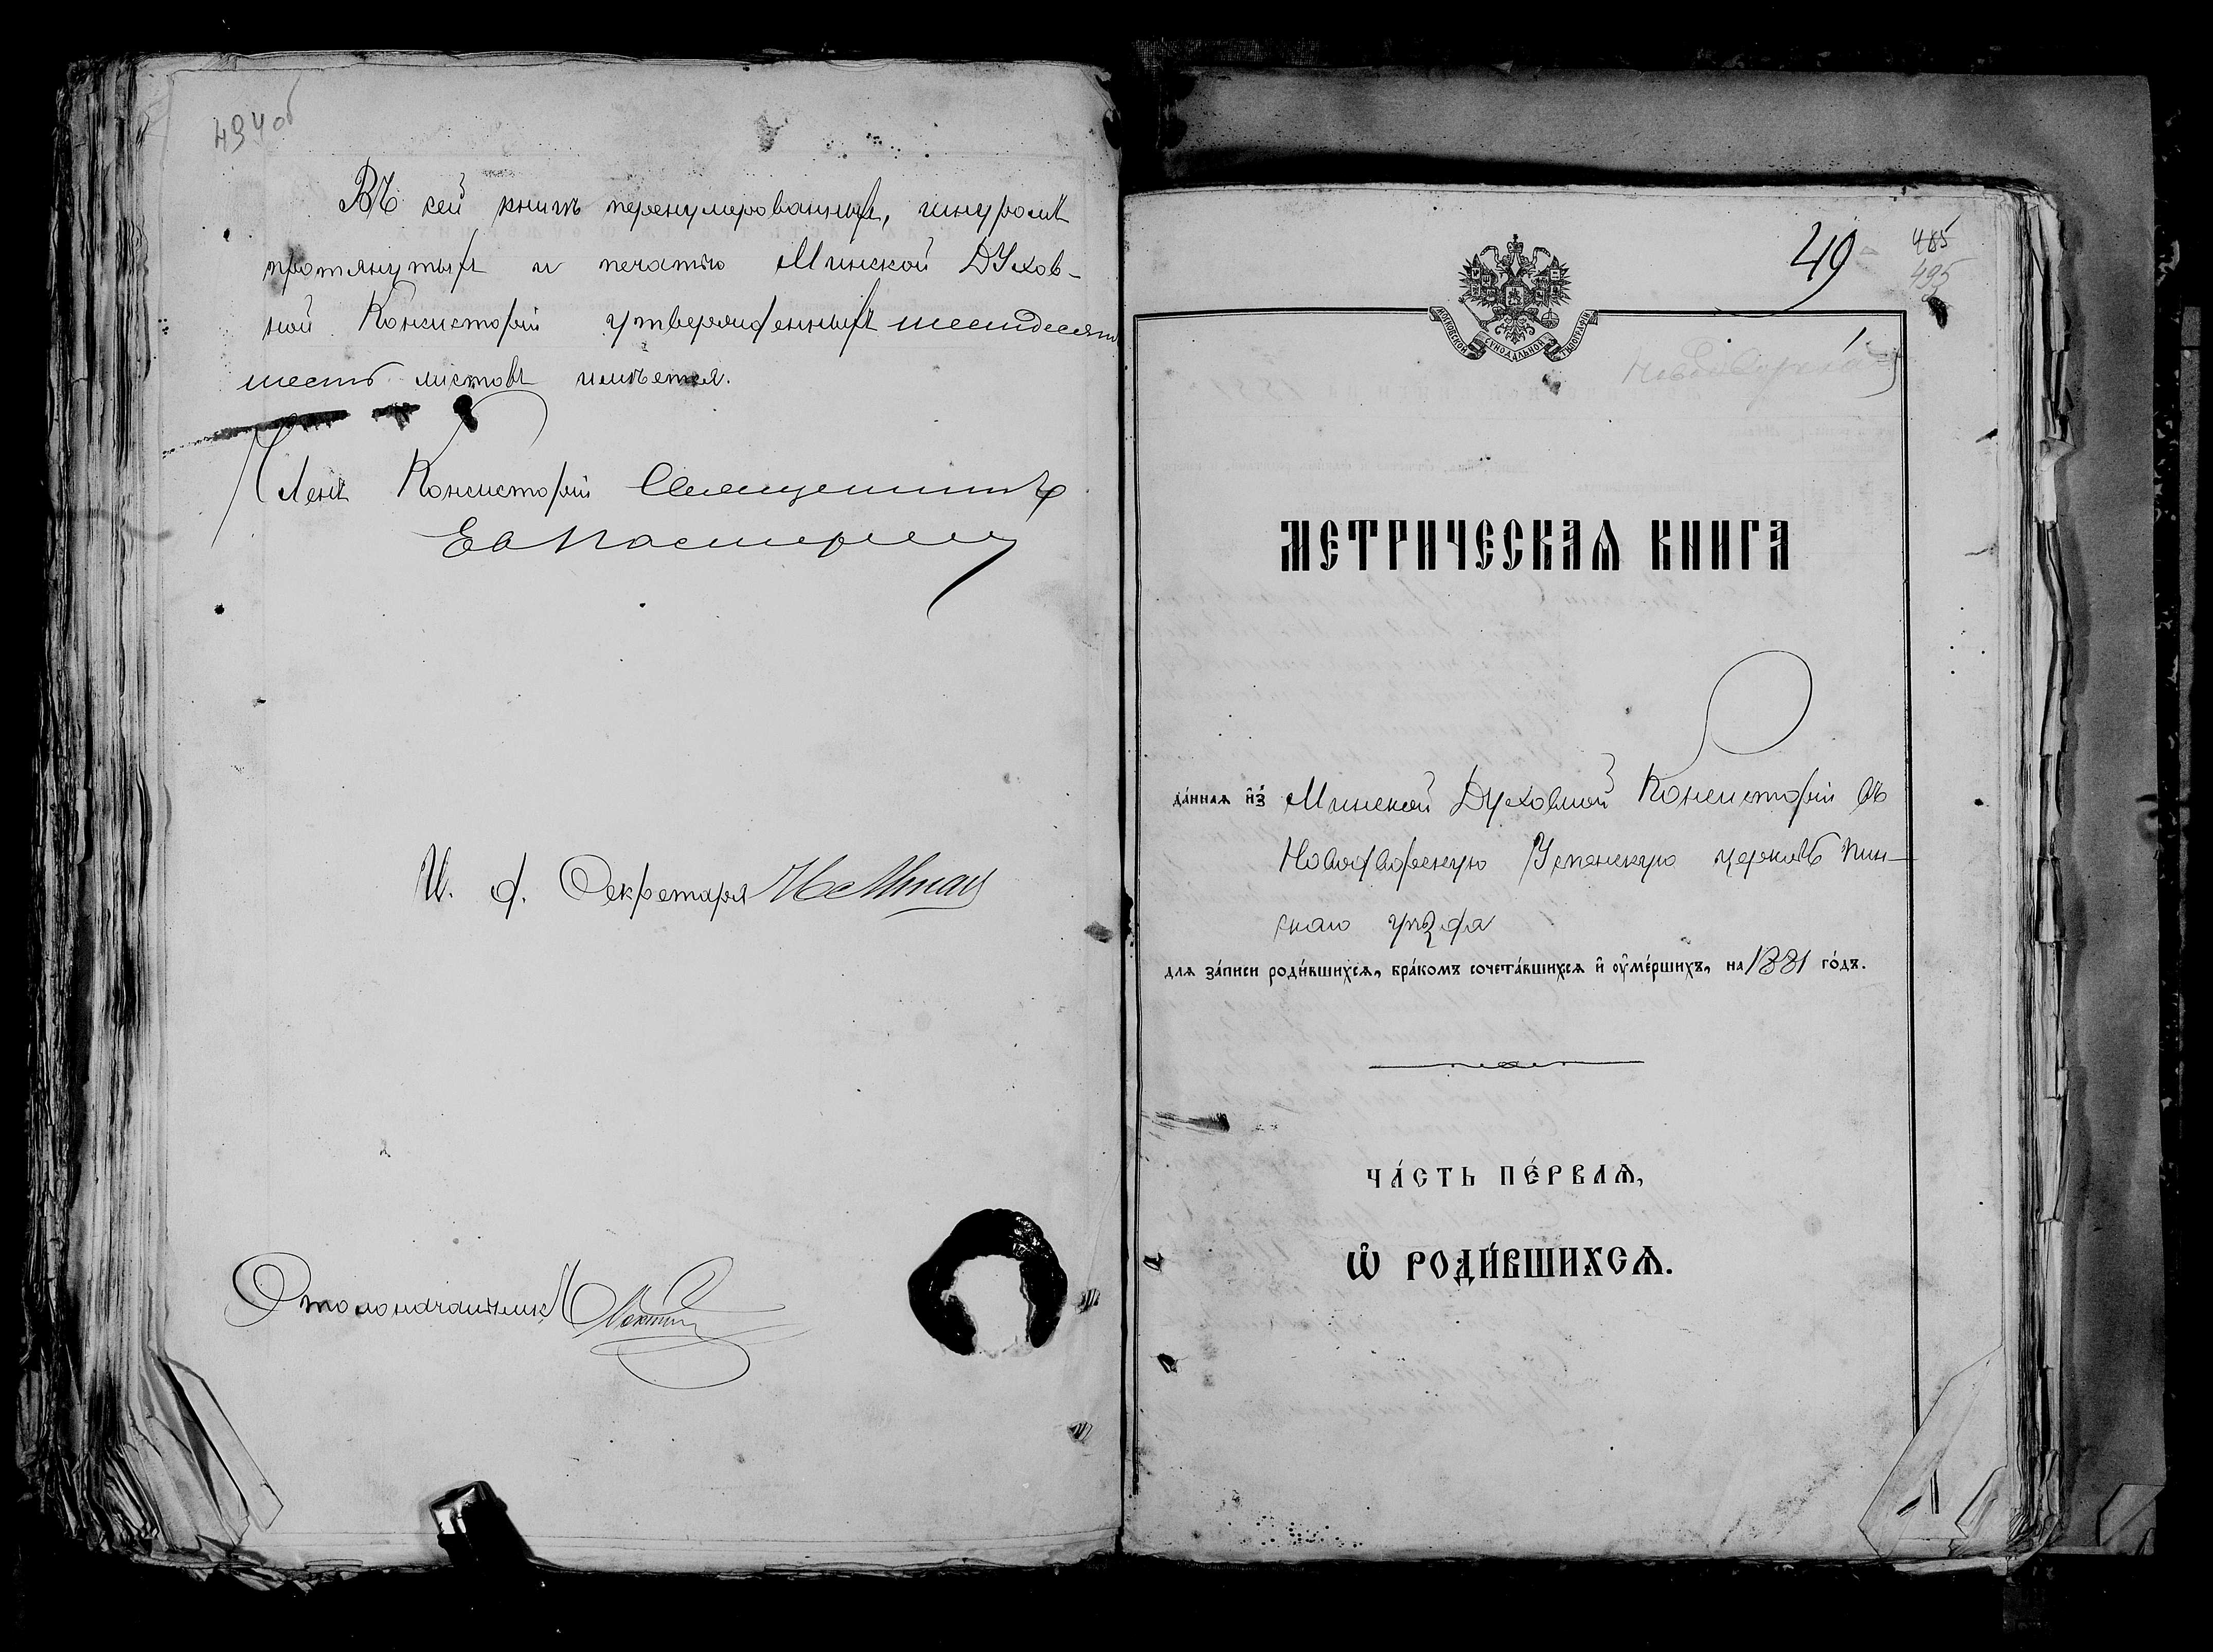 494об
Въ сей книгѣ перенумерованныхъ, шнуромъ
протянутыхъ и печатью Минской Духов-
ной Консисторіи утвержденныхъ шестьдесятъ
шесть листовъ имѣется.
Членъ Консисторіи Священникъ
И. д. Секретаря
Столоначальникъ
49
485
495
МОСКОВСКОЙ СѴНОДАЛЬНОЙ ТИПОГРАФІИ
МЕТРИЧЕСКАѦ КНИГА
да́ннаѧ и҆з̾ Минской Духовной Консисторіи въ
Новодворскую Успенскую церковь Пин-
скаго уѣзда
для за́писи роди́вшихсѧ, бра́комъ сочета́вшихсѧ и҆ оу҆ме́ршихъ, на 1881 го́дъ.
ЧА́СТЬ ПЕ́РВАѦ,
Ѡ҆ РОДИ́ВШИХСѦ.